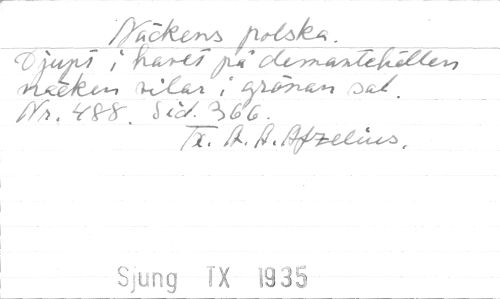 Näckens polska.
Djupt i havet på demantehällen
näcken vilar i grönan sal.
Nr. 488. Sid. 366.
Tx. A. A. Afzelius.
Sjung TX 1935